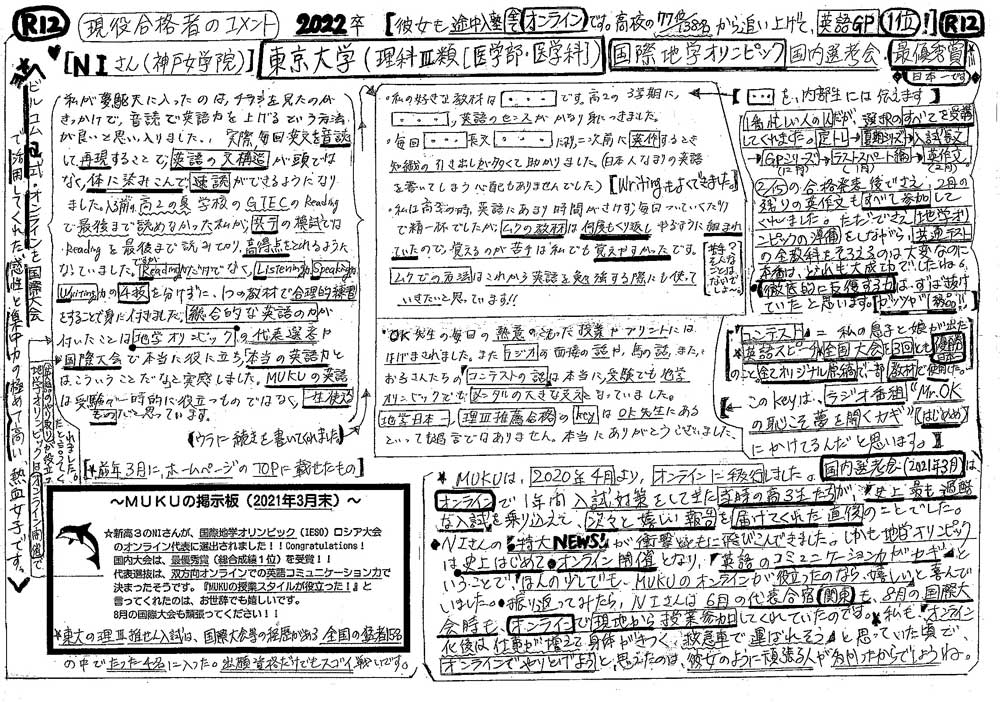 R12 現役合格者のコメント 2022卒 [彼女も途中入塾(オンライン)です。高校の から追い上げて、英語GP 1位!] R12
♥[NIさん(神戸女学院)] 東京大学(理科Ⅲ類[医学部・医学科]) 国際地学オリンピック国内選考会・最優秀賞
(日本一です)
私が夢駆天に入ったのは、チラシを見たのが
きっかけで、音読で英語力を上げるという方法
が良いと思い入りました。実際毎回英文を音読
して再現することで、英語の文構造が頭では
なく体に染みこんで速読ができるようになり
ました。入る前、高2の夏学校のGTECのReading
で最後まで読めなかった私が、数ヶ月の模試では
Readingを最後まで読みており、高得点をとれるように
なっていました。ReadingだけでなくListening力、Speaking力、
Writing力の4技能を分けずに、1つの教材で合理的に練習
をすることで身に付きました。総合的な英語の力が
付いたことは地学オリンピックの代表選考や
国際大会で本当に役に立ち、本当の英語力と
はこういうことだなと実感しました。MUKUの英語
は受験や一時的に役立つものではなく、一生使える
ものだと思っています。
[ウラに続きを書いてくれました]
・私の好きな教材は[・・・]です。高2の3学期に、
[・・・]、英語のセンスがかなり身につきました。
・毎回[・・・]長文[・・・]により二次前に英作するとき
知識の引き出しが多くて助かりました。(日本人なまりの英語
を書いてしまう心配もありませんでした)[Writingもよくできました。]
・私は高3の時、英語にあまり時間がさけず、毎日ついていくだけ
で精一杯でしたが、ムクの教材は何度もくり返しやるように組まれ
ていたので、覚えるのが苦手は私でも覚えやすかったです。
ムクでの方法はこれから英語を勉強する際にも使って
いきたいと思っています!!
苦手?そんなことはないでしょ〜
・OK先生の毎日の熱意のこもった授業やプリントには
はげまされました。またラジオの面接の話や、馬の話、また、
お子さんたちのコンテストの話は本当に受験でも地学
オリンピックでもメンタルの大きな支えとなっていました。
地学日本一、理Ⅲ推薦合格のkeyはOK先生にある
といって過言ではありません。本当にありがとうございました。
[[・・・]を、内部生には伝えます]
1番忙しい人の1人だが、選択のすべてを受講
してくれました。定トレ→夏期シリーズ→入試長文
→GPシリーズ→ラストスパート編→英作文。
(12月) (1月) (2月)
2/15の合格発表後でさえ、2月の
残りの英作文もすべて参加して
くれました。ただでさえ地学オリ
ンピックの準備をしながら、共通テスト
の全教科をそろえるのは大変なのに
本番は、どれも大成功でしたね。
徹底的に反復する力は、ずば抜け
ていたと思います。ガッツが一級品!!
[コンテスト=私の息子と娘が出た
英語スピーチの全国大会で3回とも優勝
のこと。全てオリジナル原稿で一部教材で使用した。
[このkeyは、ラジオ番組"Mr.OK
の恥こそ夢を開くカギ"[はじめに]
にかけてるんだと思います。]
[*前年3月に、ホームページのTOPに載せたもの]
~MUKUの掲示板(2021年3月末)~
☆新高3のNIさんが、国際地学オリンピック(IESO)ロシア大会
のオンライン代表に選出されました!!Congratulations!
国内大会は、最優秀賞(総合成績1位)を受賞!!
代表選抜は、双方向オンラインでの英語コミュニケーション力で
決まったそうです。『MUKUの授業スタイルが役立った!』と
言ってくれたのは、お世辞でも嬉しいです。
8月の国際大会も頑張ってください!!
*東大の理Ⅲ推せん入試は、国際大会等の経歴がある全国の猛者15名
の中でたった4名に入った。出願資格だけでもスゴイ戦いです。
*MUKUは、2020年4月より、オンラインに移行しました。国内選考会(2021年3月)は
オンラインで1年間入試対策をしてきた当時の高3生たちが、史上最も過酷
な入試を乗り込えて、次々と嬉しい報告を届けてくれた直後のことでした。
・NIさんの"特大NEWS!"が衝撃的に飛びこんできました。しかも地学オリンピック
は、史上はじめてオンライン開催となり、『英語のコミュニケーション力がカギ』と
いうことで『ほんの少しでも、MUKUのオンラインが役立ったのなら、嬉しい』と喜んで
いました。・振り返ってみたら、NIさんは6月の代表合宿(関東)も、8月の国際大
会時も、オンラインで現地から授業参加してくれていたのです。*私も、オンライン
化後は仕事が増えて身体がきつく、救急車で運ばれそうと思っていた頃で
オンラインでやりとげようと思えたのは、彼女のように頑張る人が多かったからでしょうね。
ビルコム 式・オンラインを国際大会
で活用してくれた感性と集中力の極めて高い熱血女子です。
地学オリンピックはオンライン開催で